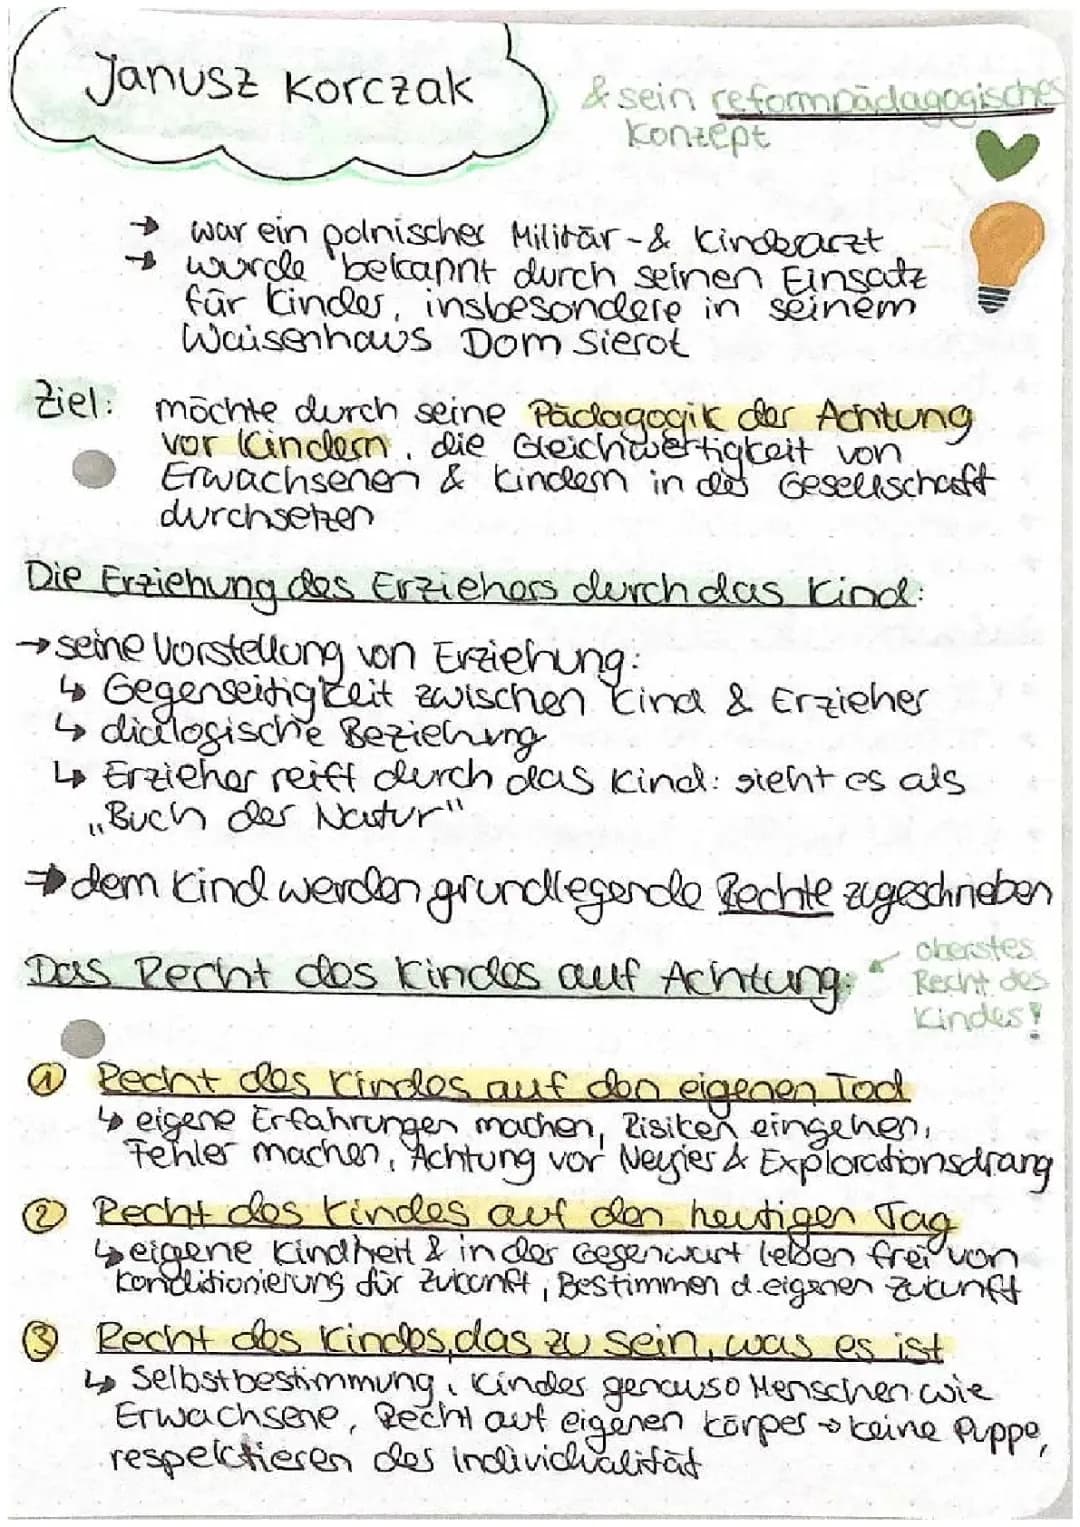 Janusz Korczak
& sein reformpädagogisches
Konzept
→ war ein polnischer Militär- & Kinderarzt
→ wurde bekannt durch seinen Einsatz
für Kinder, insbesondere in seinem
Waisenhaus Dom Sierot
Ziel: möchte durch seine Pädagogik der Achtung
vor Kindern, die Gleichwertigkeit von
Erwachsenen & Kindern in der Gesellschaft
durchsetzen
Die Erziehung des Erziehers durch das Kind:
→ seine Vorstellung von Erziehung:
↳ Gegenseitigkeit zwischen Kind & Erzieher
↳ dialogische Beziehung
↳ Erzieher reift durch das Kind: sieht es als
„Buch der Natur"
⇒ dem Kind werden grundlegende Rechte zugeschrieben
Das Recht des Kindes auf Achtung:
oberstes
Recht des
Kindes!
① Recht des Kindes auf den eigenen Tod
↳ eigene Erfahrungen machen, Risiken eingehen,
Fehler machen, Achtung vor Neugier & Explorationsdrang
② Recht des Kindes auf den heutigen Tag
↳ eigene Kindheit & in der Gegenwart leben frei von
Konditionierung für Zukunft, Bestimmen d. eigenen Zukunft
③ Recht des Kindes, das zu sein, was es ist
↳ Selbstbestimmung, Kinder genauso Menschen wie
Erwachsene, Recht auf eigenen Körper → keine Puppe,
respektieren der Individualität